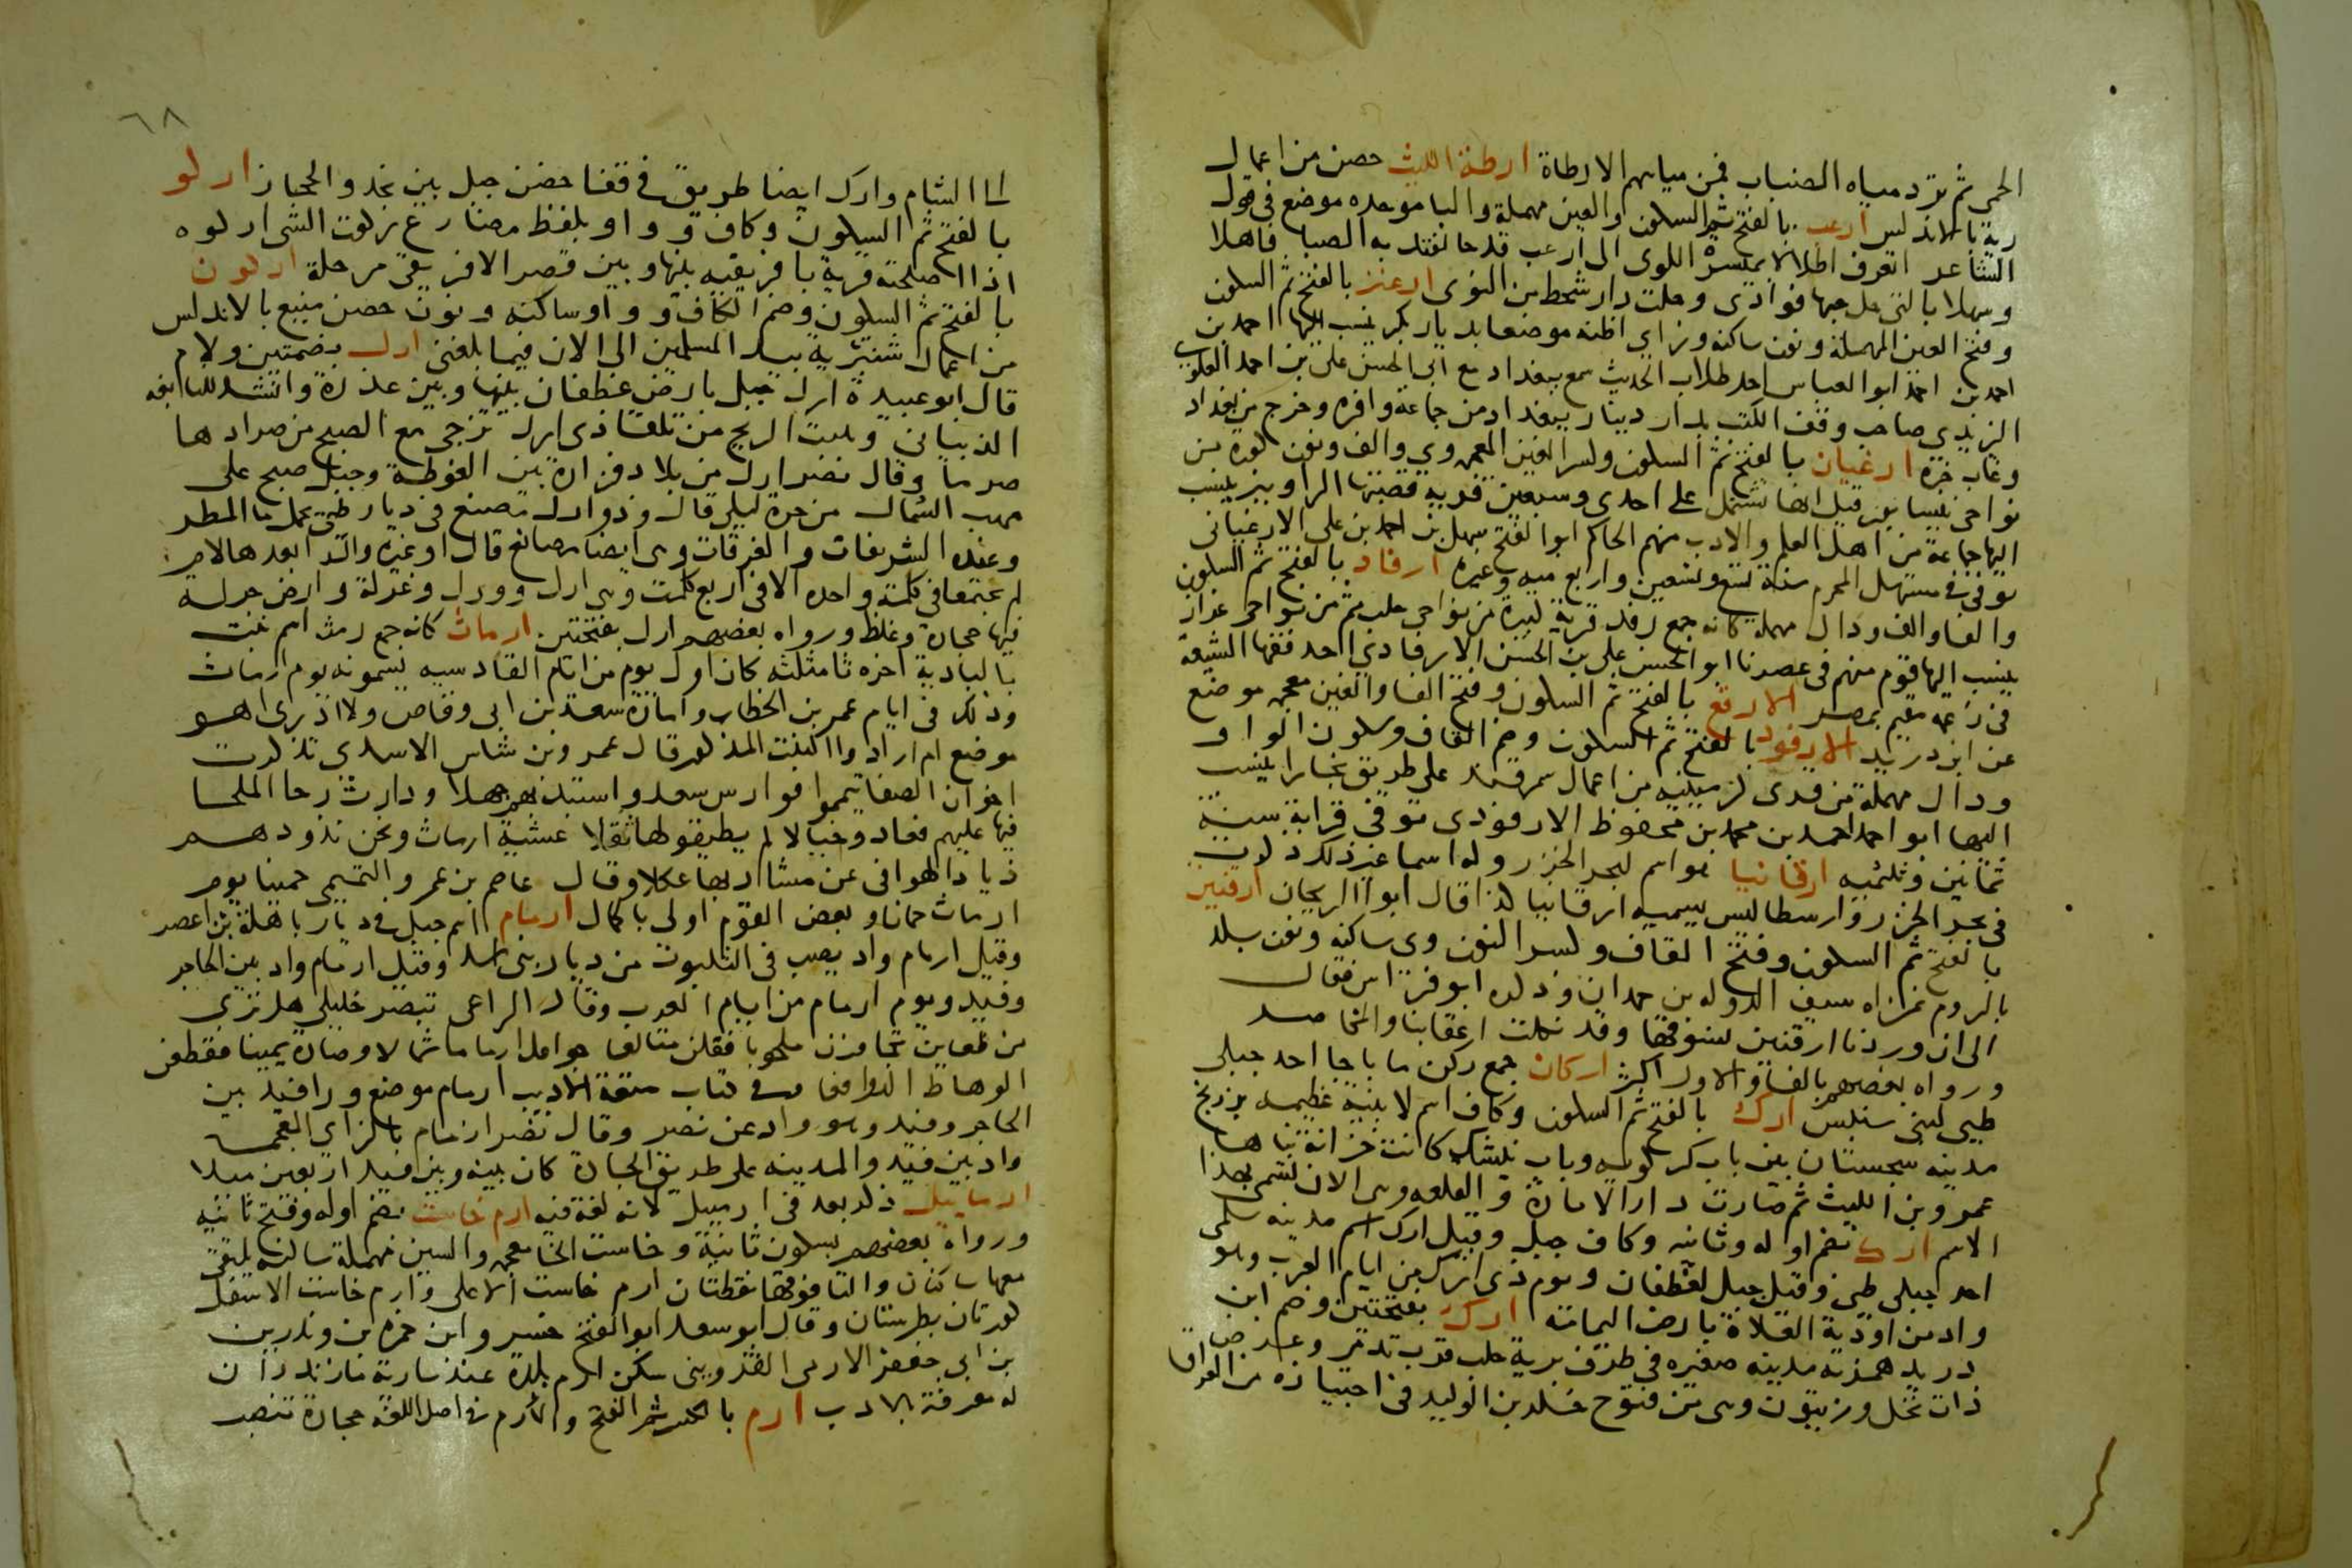 الحمى ثم ترد مياه الضباب فمن مياههم الارطاة ارطة الليث حصن من اعمال
رية بالاندلس ارعب بالفتح ثم السكون والعين مهملة والبا موحده موضع في قول
الشاعر اتعرف اطلالا بميسرة اللوى الى ارعب قد حالفتك به الصبا فاهلا
وسهلا بالتي حل حبها فوادي وحلت دار شحط من النوى ارعنز بالفتح ثم السكون
وفتح العين المهملة ونون ساكنه وزاي اظنه موضعا بديار بكر ينسب اليها احمد بن
احمد بن احمد ابو العباس احد طلاب الحديث سمع ببغداد مع ابي الحسن علي بن احمد العلوي
الزيدي صاحب وقف الكتب بدار دينار ببغداد من جماعة وافره وخرج من بغداد
وغاب خبره ارغيان بالفتح ثم السكون وكسر الغين المعجمه وي والف ونون كورة من
نواحي نيسابور قيل انها تشتمل على احدى وسبعين قرية قصبتها الراونير ينسب
اليها جماعة من اهل العلم والادب منهم الحاكم ابو الفتح سهل بن احمد بن علي الارغياني
توفي في مستهل المحرم سنة تسع وتسعين واربع ميه وغيره ارفاد بالفتح ثم السكون
والفا والف ودال مهمله كانه جمع رفد قرية كبيرة من نواحي حلب ثم من نواحي عزاز
ينسب اليها قوم منهم في عصرنا ابو الحسن علي بن الحسن الارفادي احد فقها الشيعة
في زعمه مقيم بمصر الارفغ بالفتح ثم السكون وفتح الفا والغين معجمه موضع
عن ابن دريد الارفود بالفتح ثم السكون وضم الفاف وسكون الواو
ودال مهملة من قرى كرمينيه من اعمال سمرقند على طريق بخارا ينسب
اليها ابو احمد احمد بن محمد بن محفوظ الارفودي توفي قرابة سنة
ثمانين وثلثميه ارقانيا هو اسم لبحر الخزر وله اسما غير ذلك ذكرت
في بحر الخزر وارسطاليس يسميه ارقانيا كذا قال ابو الريحان ارقنين
بالفتح ثم السكون وفتح القاف وكسر النون وي ساكنه ونون بلد
بالروم غزاه سيف الدوله بن حمدان وذكره ابو فراس فقال
الى ان وردنا ارقنين نسوقها وقد نكلت اعقابنا والمخاصر
ورواه بعضهم بالفا والاول اكثر اركان جمع ركن ما باجا احد جبلي
طيي لبني سنبس ارك بالفتح ثم السكون وكاف اسم لابنية عظيمه بزرنج
مدينه سجستان بين باب كركويه وباب نيشك كانت خزانة بناها
عمرو بن الليث ثم صارت دار الامارة والقلعه وهي الان تسمى بهذا
الاسم ارك بضم اوله وثانيه وكاف جبل وقيل ارك اسم مدينه سلمى
احد جبلي طي وقيل جبل لغطفان ويوم ذي ارك من ايام العرب وهو
واد من اودية العلاة بارض اليمامة ارك بفتحتين وضم ابن
دريد همزته مدينه صغيره في طرف برية حلب قرب تدمر وعرض
ذات نخل وزيتون وهي من فتوح خلد بن الوليد في اجتيازه من العراق
٦٨
الى الشام وارك ايضا طريق في قفا حضن جبل بين نجد والحجاز اركو
بالفتح ثم السكون وكاف وواو بلفظ مضارع ركوت الشي اركوه
اذا اصلحته قرية بافريقيه بينها وبين قصر الافريقي مرحلة اركون
بالفتح ثم السكون وضم الكاف وواو ساكنه ونون حصن منيع بالاندلس
من اعمال شنتريه بيد المسلمين الى الان فيما بلغني ارل بضمتين ولام
قال ابو عبيدة ارل جبل بارض غطفان بينها وبين عذرة وانشد للنابغه
الذبياني وهبت الريح من تلقا ذي ارل تزجي مع الصبح من صرادها
صرما وقال نصر ارل من بلاد فزارة بين الغوطة وجبل صبح على
مهب الشمال من حرة ليلى قال وذو ارل مصنع في ديار طيي يحمل ما المطر
وعنده الشريفات والغرقات وهي ايضا مصانع قال او غيره والرا بعدها لام
لم تجتمعا في كلمة واحده الا في اربع كلمت وهي ارل وورل وغرلة وارض جرلة
فيها حجارة وغلظ ورواه بعضهم ارل بفتحتين ارماث كانه جمع رمث اسم نبت
بالبادية اخره ثا مثلثه كان اول يوم من ايام القادسيه يسمونه يوم ارماث
وذلك في ايام عمر بن الخطاب وامارة سعد بن ابي وقاص ولا ادري اهو
موضع ام اراد واالنبت المذكور قال عمرو بن شاس الاسدي تذكرت
اخوان الصفا تيمموا فوارس سعد واستبد بهم جهلا ودارت رحا الملحا
فيها عليهم فعاد وخبالا لم يطيقو لها ثقلا عشية ارماث ونحن نذودهم
ذياد الهوافي عن مشاربها عكلا وقال عاصم بن عمرو التميمي حمينا يوم
ارماث حمانا وبعض القوم اولى باكمال ارمام اسم جبل في ديار باهلة بن اعصر
وقيل ارمام واد يصب في الثلبوت من ديار بني اسد وقيل ارمام واد بين الحاجر
وفيد ويوم ارمام من ايام العرب وقال الراعي تبصر خليلي هل ترى
من ظعاين تجاوزن ملحوبا فقلن متالعا جواعل ارماما شمالا وصارة يمينا فقطعن
الوهاط الدوافعا وفي كتاب متعة الاديب ارمام موضع ورا فيد بين
الحاجر وفيد وهو واد عن نصر وقال نصر ارمام بالزاي المعجمه
واد بين فيد والمدينه على طريق الجادة كان بينه وبين فيد اربعين ميلا
ارماييل ذكر بعد في ارمبيل لانه لغة فيه ارم خاست بضم اوله وفتح ثانيه
ورواه بعضهم بسكون ثانية وخاست الخا معجمه والسين مهملة ساكنه يلتقي
معها ساكنان والتا فوقها نقطتان ارم خاست الاعلى وارم خاست الاسفل
كورتان بطبرستان وقال ابو سعد ابو الفتح خسرو ابن حمزه بن وندرين
بن ابي جعفر الارمي القزويني سكن ارم بلدة عند سارية مازندران
له معرفة بالادب ارم بالكسر ثم الفتح والارم في اصل اللغه حجارة تنصب